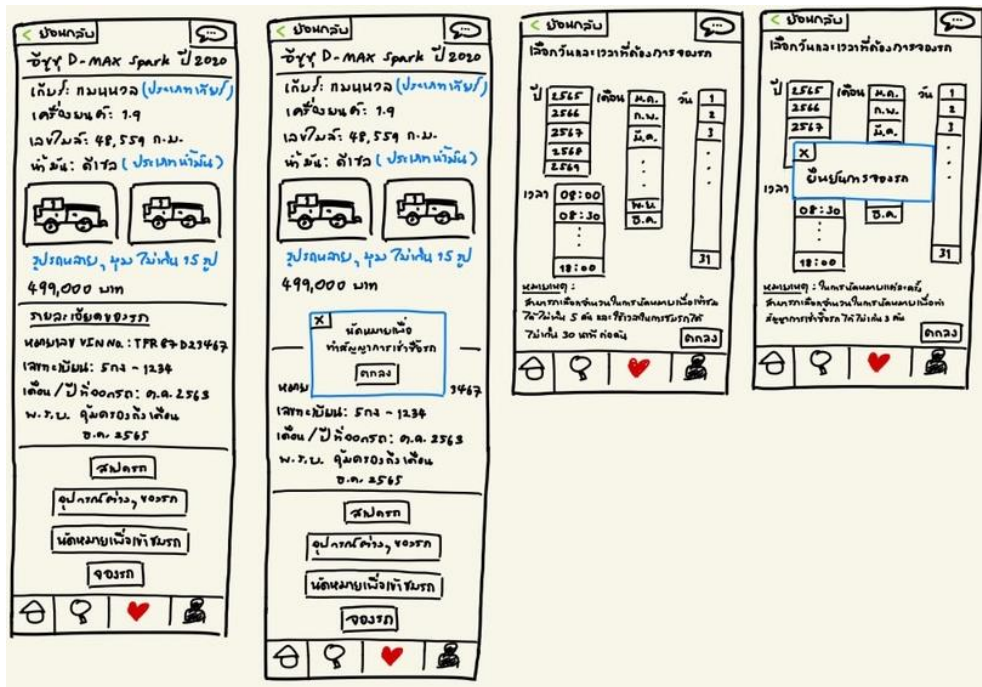 < ย้อนกลับ
อีซูซุ D-MAX Spark ปี 2020
เกียร์: แมนนวล (ประเภทเกียร์)
เครื่องยนต์: 1.9
เลขไมล์: 48,559 ก.ม.
น้ำมัน: ดีเซล (ประเภทน้ำมัน)
รูปรถหลายๆ มุม ไม่เกิน 15 รูป
499,000 บาท
รายละเอียดของรถ
หมายเลข VIN No. : TFR87D23467
เลขทะเบียน: 5กง - 1234
เดือน / ปี ที่ออกรถ: ต.ค. 2563
พ.ร.บ. คุ้มครองถึงเดือน
ธ.ค. 2565
สเปครถ
อุปกรณ์ต่างๆ ของรถ
นัดหมายเพื่อเข้าชมรถ
จองรถ
< ย้อนกลับ
อีซูซุ D-MAX Spark ปี 2020
เกียร์: แมนนวล (ประเภทเกียร์)
เครื่องยนต์: 1.9
เลขไมล์: 48,559 ก.ม.
น้ำมัน: ดีเซล (ประเภทน้ำมัน)
รูปรถหลายๆ มุม ไม่เกิน 15 รูป
499,000 บาท
X
นัดหมายเพื่อ
ทำสัญญาการเช่าซื้อรถ
ตกลง
หมาย 3467
เลขทะเบียน: 5กง - 1234
เดือน / ปี ที่ออกรถ: ต.ค. 2563
พ.ร.บ. คุ้มครองถึงเดือน
ธ.ค. 2565
สเปครถ
อุปกรณ์ต่างๆ ของรถ
นัดหมายเพื่อเข้าชมรถ
จองรถ
< ย้อนกลับ
เลือกวันและเวลาที่ต้องการจองรถ
ปี 2565 เดือน ม.ค. วัน 1
2566 ก.พ. 2
2567 มี.ค. 3
2568
2569
เวลา 08:00 พ.ย.
08:30 ธ.ค.
18:00 31
หมายเหตุ :
สามารถเลือกจำนวนในการนัดหมายเพื่อเข้าชม
ได้ไม่เกิน 5 คัน และใช้เวลาในการชมรถได้
ไม่เกิน 30 นาที ต่อคัน
ตกลง
< ย้อนกลับ
เลือกวันและเวลาที่ต้องการจองรถ
ปี 2565 เดือน ม.ค. วัน 1
2566 ก.พ. 2
2567 มี.ค. 3
X
ยืนยันการจองรถ
เวลา
08:30 ธ.ค.
18:00 31
หมายเหตุ : ในการนัดหมายแต่ละครั้ง
สามารถเลือกจำนวนในการนัดหมายเพื่อทำ
สัญญาการเช่าซื้อรถ ได้ไม่เกิน 3 คัน
ตกลง